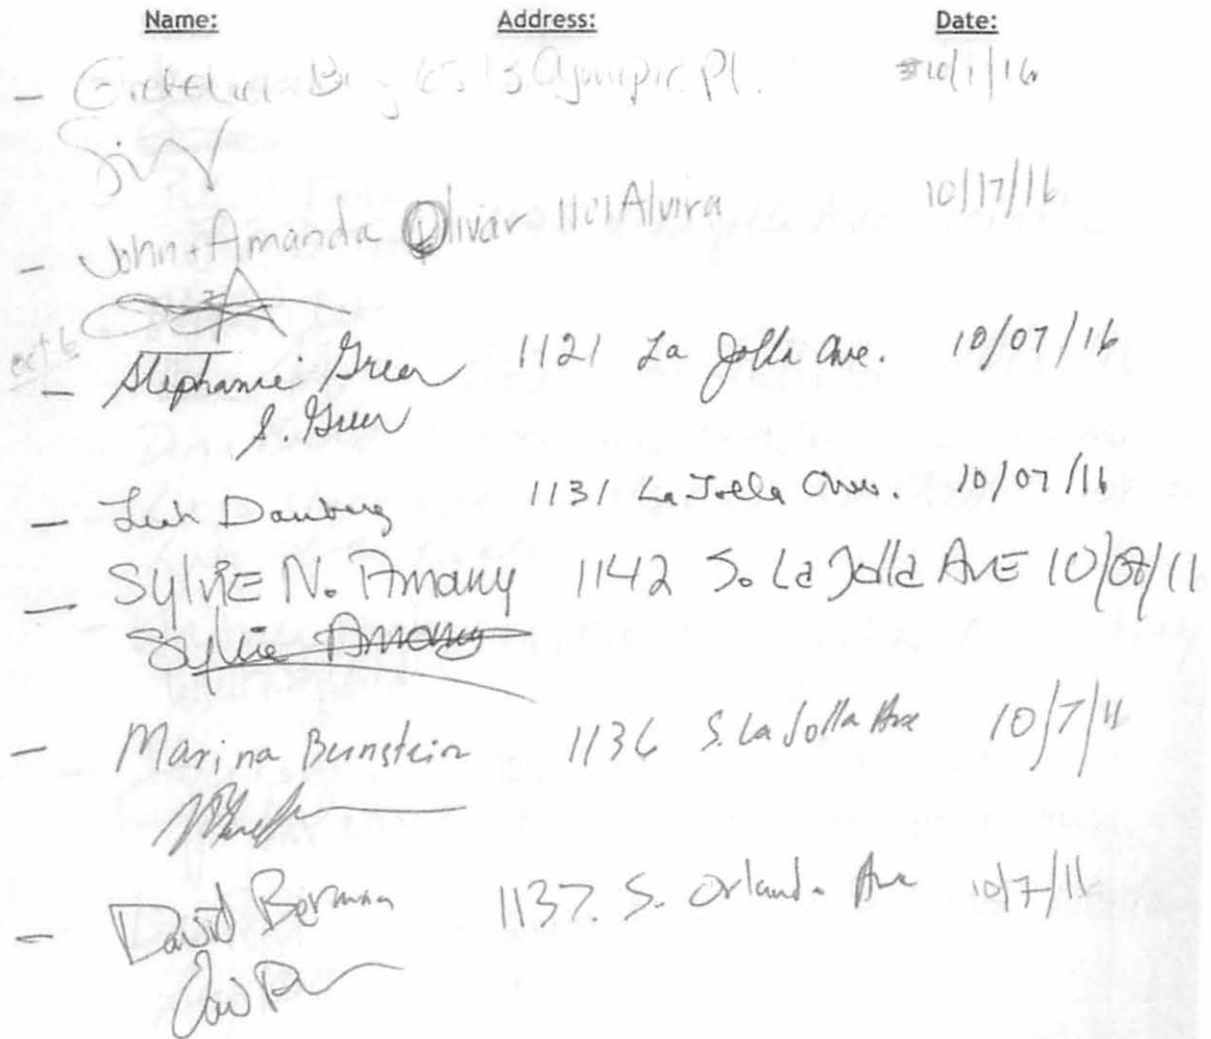 Name: Address: Date:
Pl. 10/1/16
John + Amanda Olivar 1101 Alvira 10/17/16
oct 6
Stephanie Greer 1121 La Jolla Ave. 10/07/16
S. Greer
Leah 1131 La Jolla Ave. 10/07/16
SylviE N. Amany 1142 So La Jolla AvE 10/07/11
Sylvie Amany
Marina Bernstein 1136 S. La Jolla Ave 10/7/16
David Berman 1137. S. Orlando Ave 10/7/16